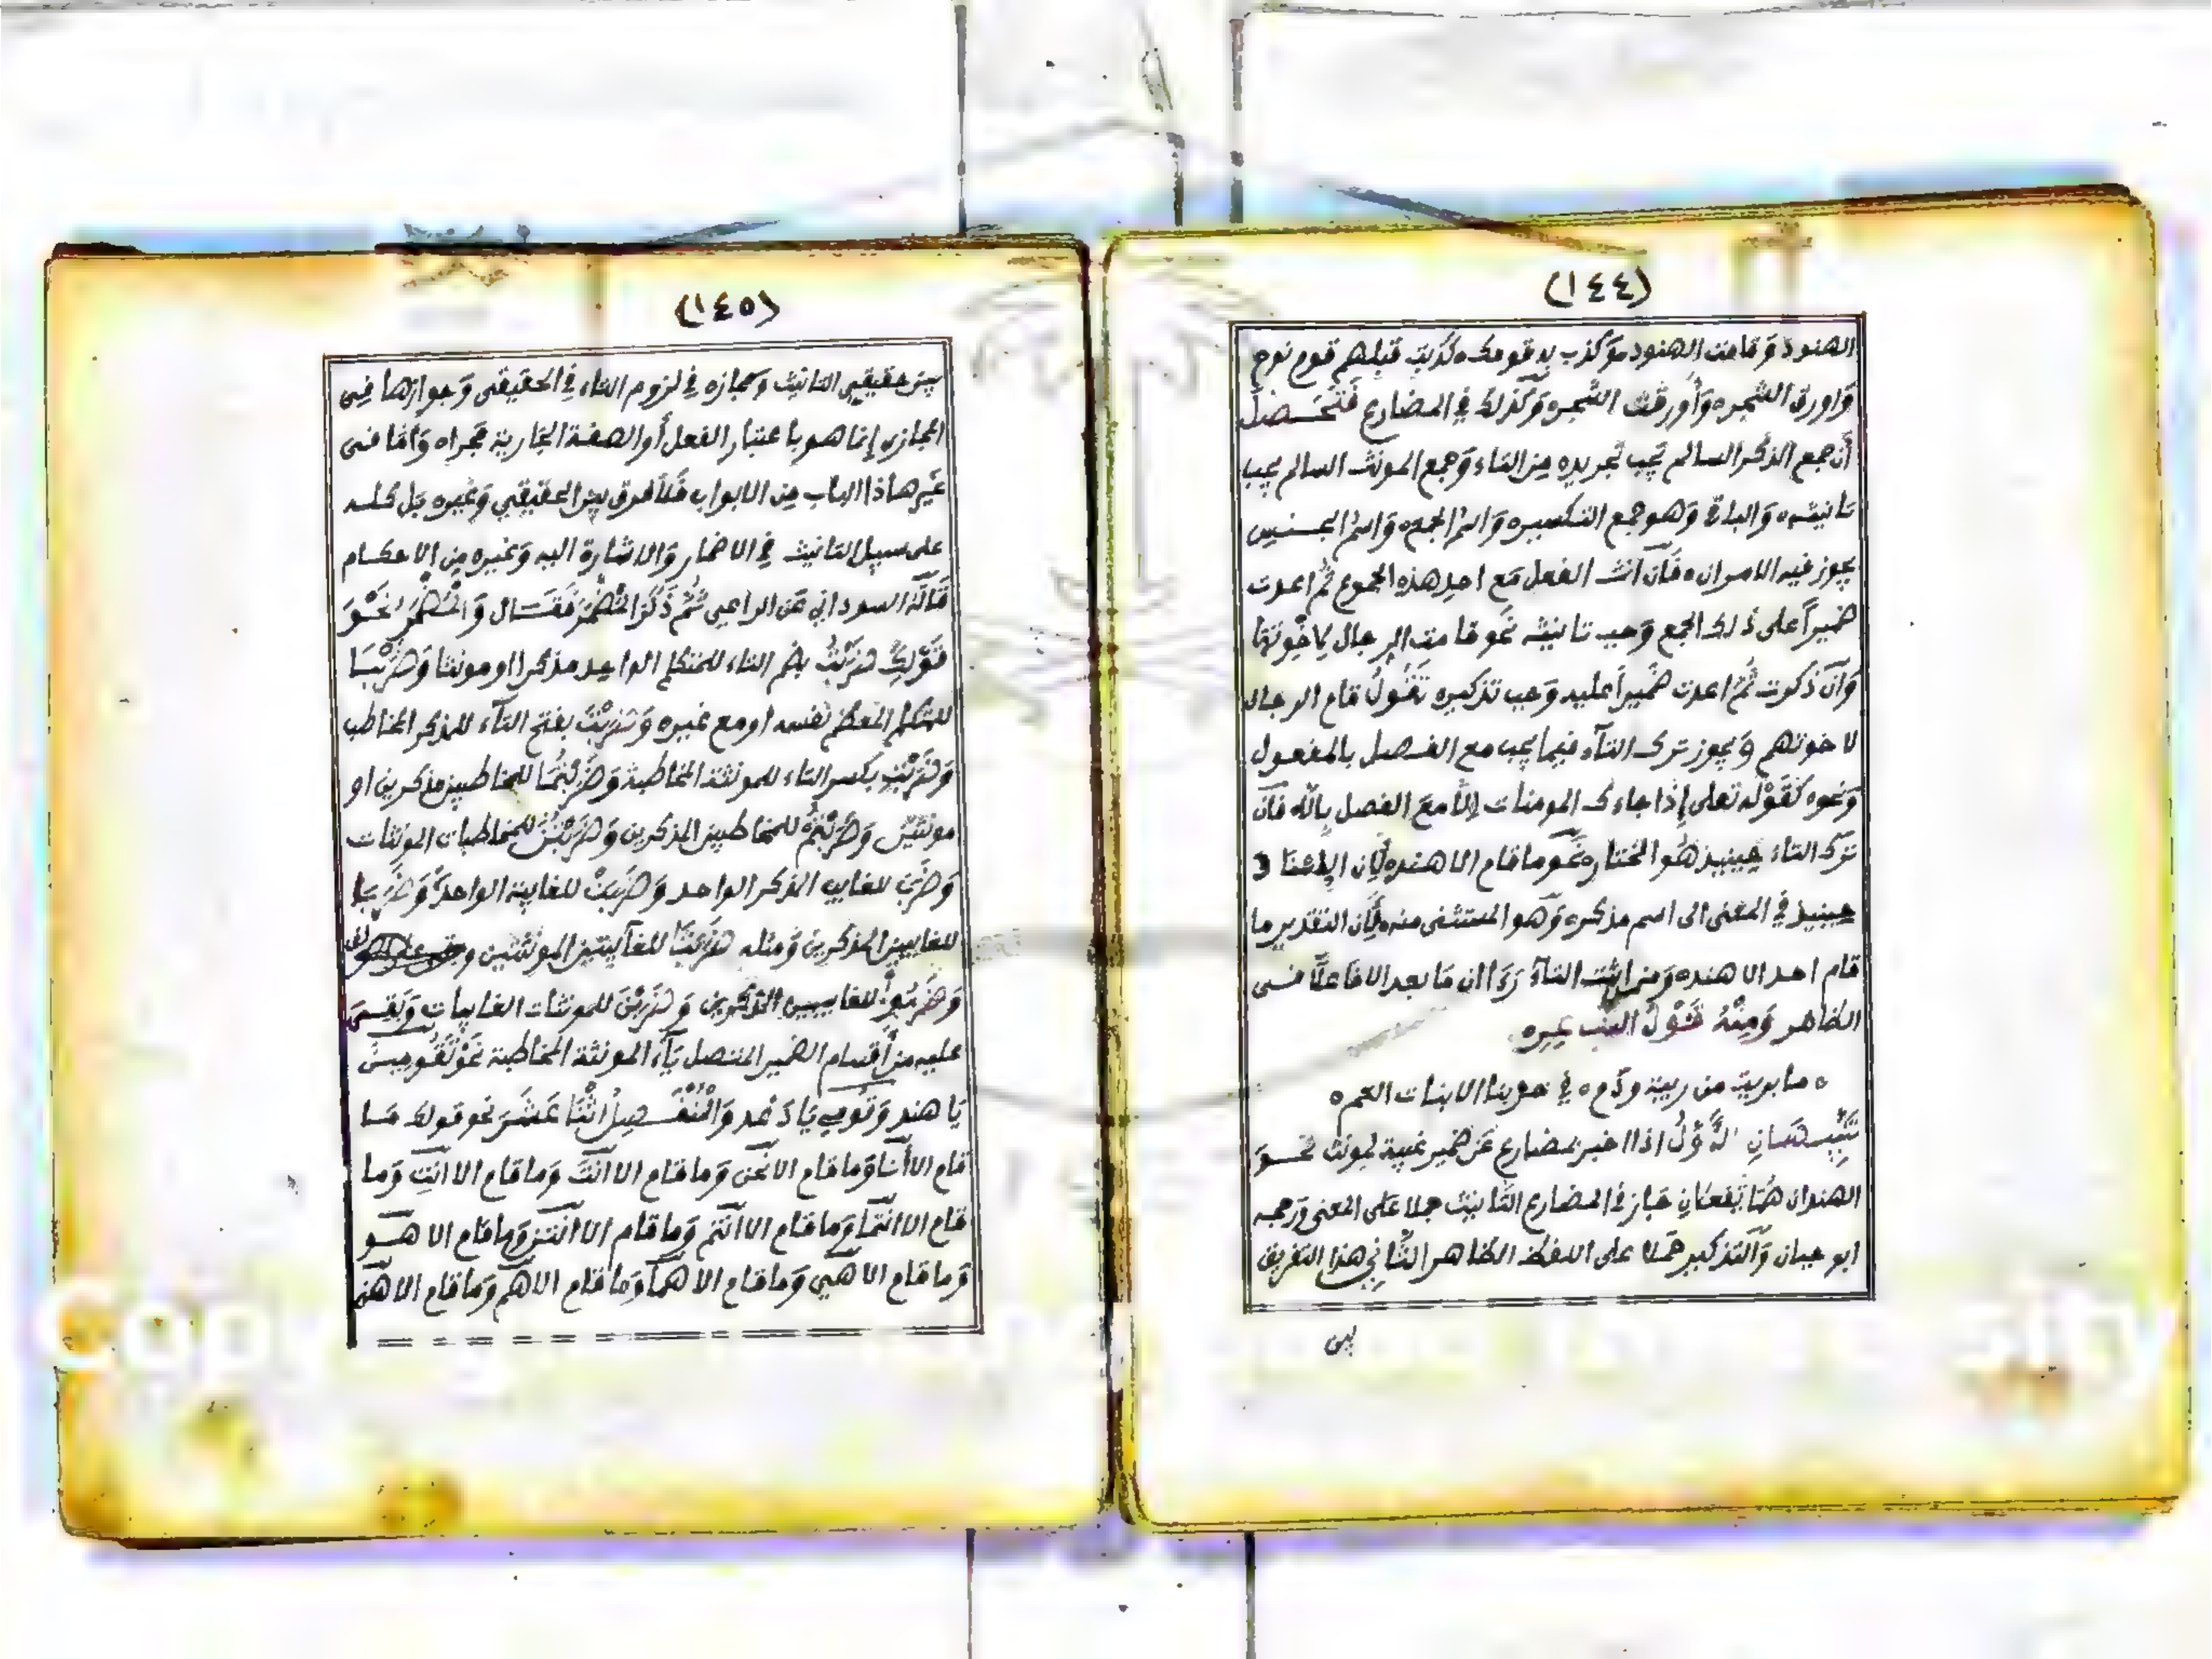 (١٤٤)
الهنود وَقامت الهنود وَكذب به قومك كذبت قبلهم قوم نوح
وَاورق الشجر وَأورقت الشجر وَكذلك في المضارع فَتَحَـصـل
أن جمع الذكر السالم يجب تجريده مِن التاء وَجمع المونث السالم يجب
تانيثه وَالباقي وَهو جمع التكسير وَاسم الجمع وَاسم الجـنـس
يجوز فيه الامران فَان انث الفعل مَع احدِ هذه الجموع ثُم اعدت
ضميراً على ذلك الجمع وَجب تانيثه نَحو قامت الرجال لاخوتها
وَان ذكرت ثُم اعدت ضَميراً عليه وَجب تذكيره تَقُولُ قام الرجال
لاخوتهم وَيجوز ترك التآء فيما يجب مع الفـصـل بالمفعول
وَنحوه كَقَوْله تعلى إذا جاءك المومنات اِلاَّ مَعَ الفصل بِالاَّ فاَن
ترك التاء حِينيذ هُو المختار نَحو ما قام الا هند لأِن الاسنا د
حِينيذ في المعنى الى اسم مذكر وَهو المستثنى منه لأَن التقدير ما
قام احد الا هند وَمن اثبت التآءَ رَءا ان مَا بعد الا فاعلاً فـى
الظاهر وَمِنْهُ قَوْلُ
ما بريت من ريبة وذم في حربنا الا بنات العم
تَنْبِيـهَـانِ الاَّوَّلُ اذا اخبر بمضارع عَن ضمير غيبة لمونث نحـو
الهندان هُمَا تَفعلانِ جَاز في المضارع التَّانيث حملا عَلى المعنى وَرجحه
ابو حيان وَالتذكير حَملا على اللفظ الظاهر الثَّانِي هذا التفريق
بين
(١٤٥)
بين حقيقي التانيث وَمجازه في لزوم التاء في الحقيقى وَجوازها فِى
المجازى إنما هو باعتبار الفعل أو الصفة الجارية مَجراه وَامّا فـى
غَير هاذا الباب مِن الابواب فَلا فرق بين الحقيقي وَغيره بَل كلـه
على سبيل التانيث في الاضمار وَالاشارة اليه وَغيره مِن الاحكـام
قَالَهُ السوداني عَن الراعي ثُمَّ ذَكَرَ المُضْمَرَ فَقَـال وَالمُضْمَرُ نَحْـوَ
قَوْلِكَ ضَرَبْتُ بضم التاء للمتكلم الواحد مذكرا او مونثا وَضَرَبْنَـا
للمتكلم المعظم نفسه او مع غيره وَضَرَبْتَ بفتح التآء للمذكر المخاطب
وَضَرَبْتِ بكسر التاء للمونثة المخاطبة وَضَرَبْتُمَا للمخاطبين مذكرين او
مونثين وَضَرَبْتُمْ للمخاطبين المذكرين وَضَرَبْتُنَّ للمخاطبات المونثات
وَضَرَبَ للغايب المذكر الواحد وَضَرَبَتْ للغايبة الواحدة وَضَرَبَا
للغايبين المذكرين وَمثله ضَرَبَتَا للغايبتين المونثتين
وَضَرَبُوا للغايبين المذكرين وَضَرَبْنَ للمونثات الغايبات وَبَقِـىَ
عليه من أقسام الضمير المتصل يَاء المونثة المخاطبة نَحْوَ تَقُومِيـنَ
يَا هند وَقُومِي يَا دَعْد وَالْمُنْفَـصِلُ اثْنَا عَشَـرَ نحو قولك مَـا
قام الا أنَا وَما قام الا نَحْن وَما قام الا انتَ وَما قام الا انتِ وَما
قام الا انتما وَما قام الا انتُم وَما قام الا انتن وَما قام الا هـو
وَما قام الا هي وَما قام الا هما وَما قام الا هم وَما قام الا هن